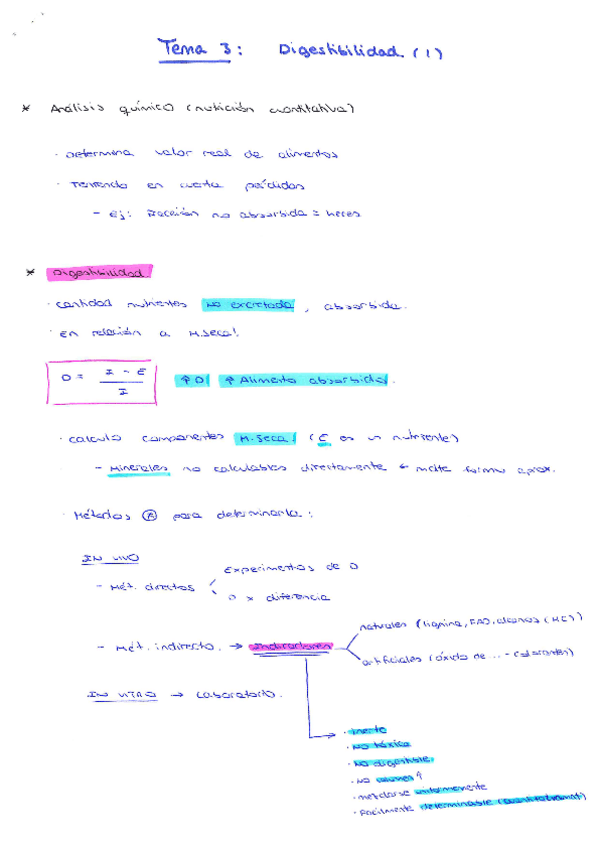 Tema 3: Digestibilidad (1)
* Análisis químico (nutrición cuantitativa)
· Determina valor real de alimentos
· Teniendo en cuenta pérdidas
- Ej: Fracción no absorbida = heces
* Digestibilidad
· cantidad nutrientes no excretada, absorbida.
· en relación a M.seca!
D = I - E / I
↑D! ↑Alimento absorbido.
· calculo componentes M.seca! (E es un nutriente)
- Minerales no calculables directamente forma aprox.
· Métodos para determinarla:
IN VIVO
Experimentos de D
- Mét. directos
D x diferencia
naturales (lignina, FAD, alcanos (HC))
- Mét. indirecto. → Indicadores
artificiales (óxido de ... - colorantes)
IN VITRO → Laboratorio.
· Inerte
· No tóxico
· No digestible.
· No
· mezclarse uniformemente
· Facilmente determinable (cuantitativamt)